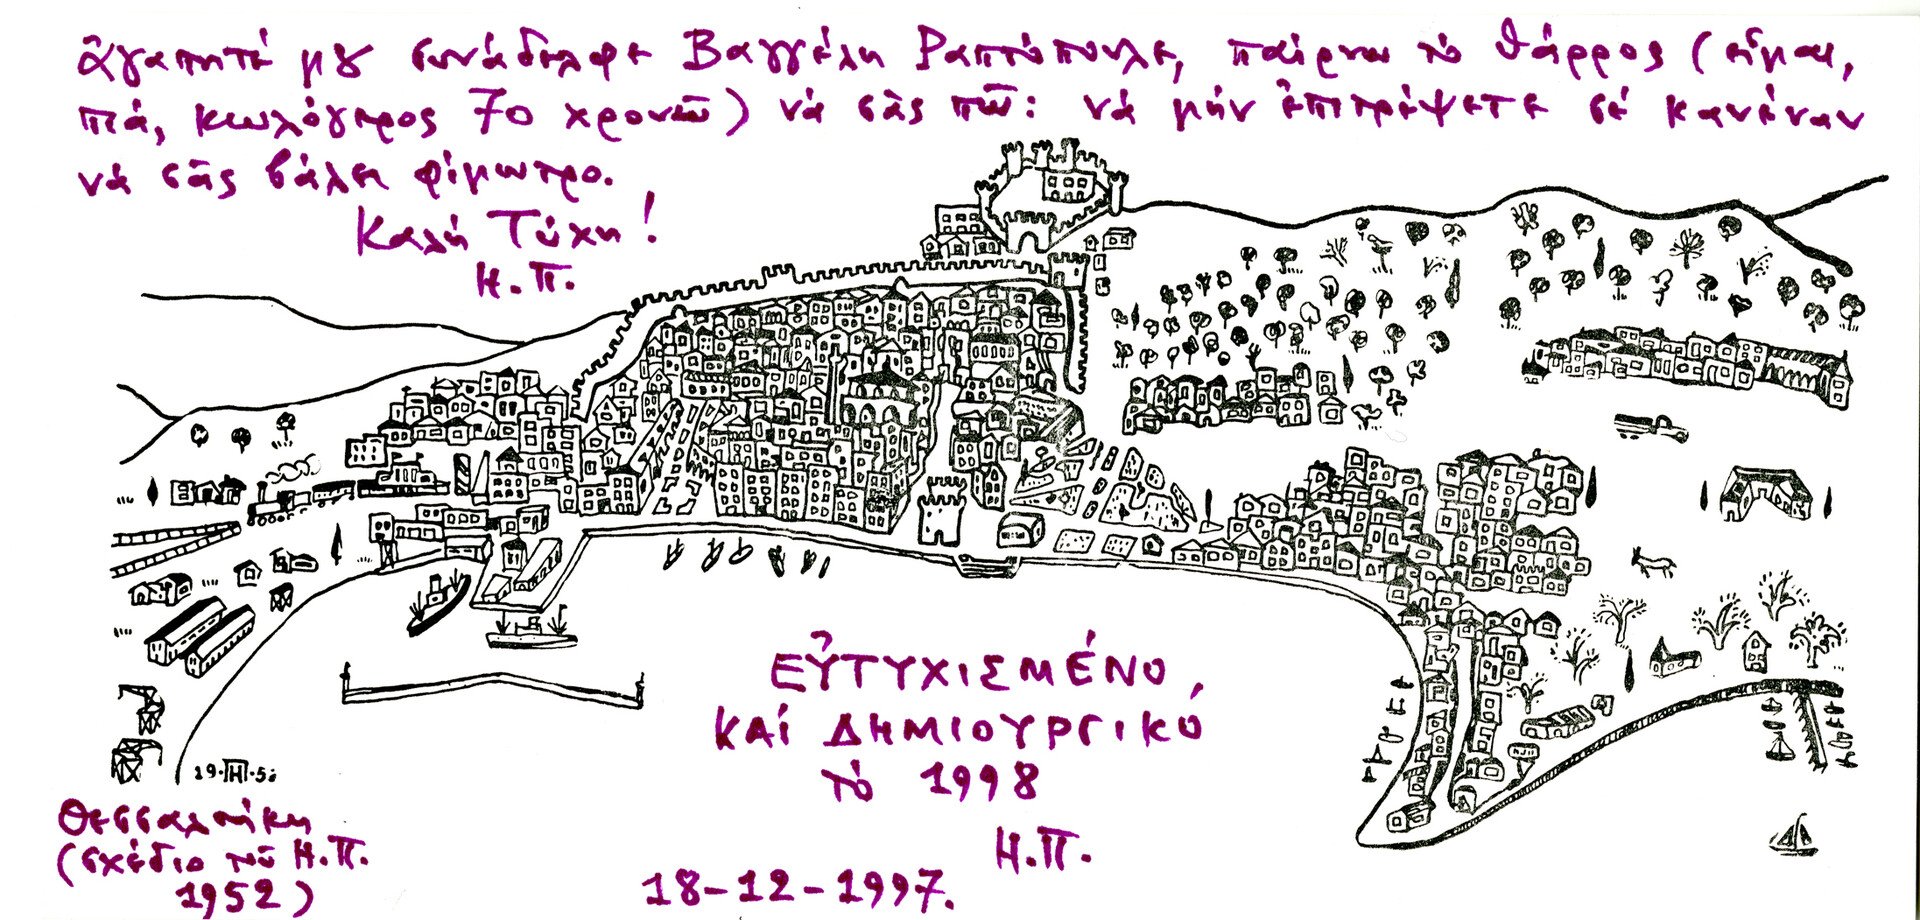 ἀγαπητέ μου συνάδελφε Βαγγέλη Ραπτόπουλε, παίρνω τὸ θάρρος (εἶμαι,
πιά, κωλόγερος 70 χρονῶ) νά σᾶς πῶ: νά μήν ἐπιτρέψετε σέ κανέναν
νά σᾶς βάλει φίμωτρο.
Καλή Τύχη!
Η.Π.
ΕὐΤΥΧΙΣΜΈΝΟ,
ΚΑΊ ΔΗΜΙΟΥΡΓΙΚΌ
τὸ 1998
Η.Π.
18-12-1997.
Θεσσαλονίκη
(σχέδιο τοῦ Η.Π.
1952)